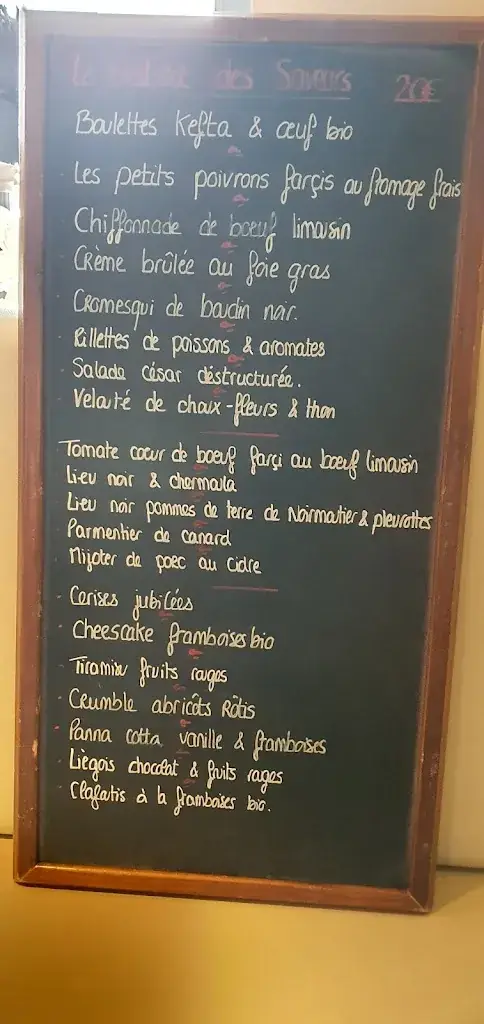 des Saveurs 20€
Boulettes Kefta & œuf bio
Les petits poivrons farçis au fromage frais
Chiffonnade de boeuf limousin
Crème brûlée au foie gras
Cromesqui de boudin noir.
Rillettes de poissons & aromates
Salade césar déstructurée.
Velouté de choux-fleurs & thon
Tomate coeur de boeuf farçi au boeuf limousin
Lieu noir & chermoula
Lieu noir pommes de terre de Noirmoutier & pleurottes
Parmentier de canard
Mijoter de porc au cidre
Cerises jubilées
Cheescake framboises bio
Tiramisu fruits rouges
Crumble abricots Rôtis
Panna cotta vanille & framboises
Liègois chocolat & fruits rouges
Clafoutis à la framboises bio.